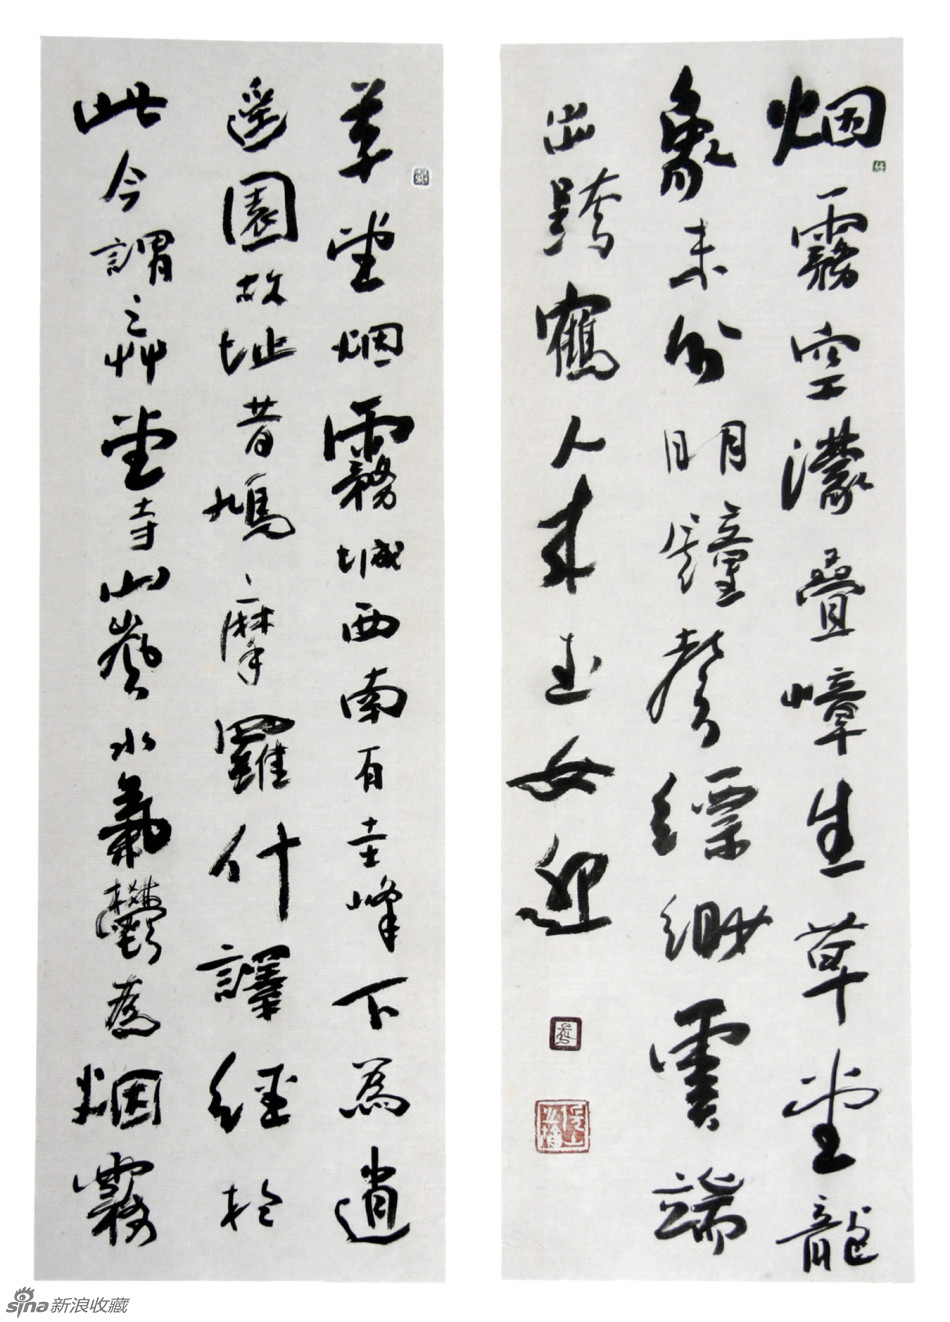 烟霧空濛疊嶂生草堂龍
象未分明鐘聲縹緲雲端
出跨鶴人來玉女迎
草堂烟霧城西南有圭峰下為逍
遥園故址昔鳩摩羅什譯經於
此今謂之艸堂寺山嵐水氣鬱為烟霧
sina新浪收藏